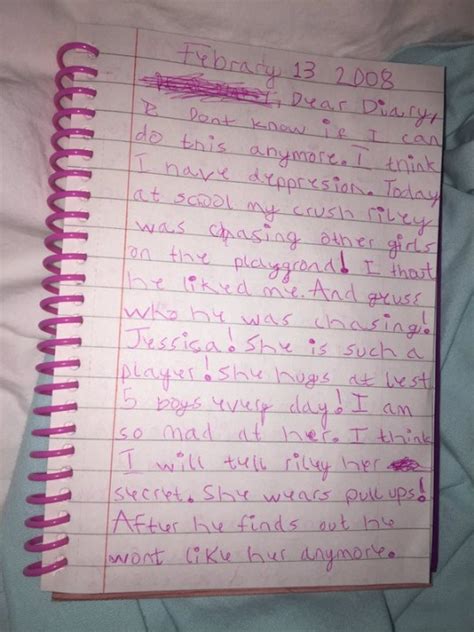 Febrary 13 2008
Dear Diary,
I Dont know if I can
do this anymore. I think
I have deppresion. Today
at scool my crush riley
was chasing other girls
on the playgrond! I thot
he liked me. And guess
who he was chasing!
Jessica! She is such a
player! She hugs at lest
5 boys every day! I am
so mad at her. I think
I will tell riley her
secret. She wears pull ups!
After he finds out he
wont like her anymore.